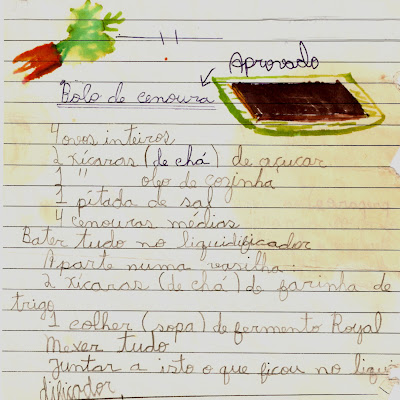 Aprovado
Bolo de cenoura
4 ovos inteiros
2 xícaras (de chá) de açucar
1 " óleo de cozinha
1 pitada de sal
4 cenouras médias
Bater tudo no liquidificador
A parte numa vasilha:
2 xícaras (de chá) de farinha de
trigo
1 colher (sopa) de fermento Royal
Mexer tudo
Juntar a isto o que ficou no liqui
dificador,